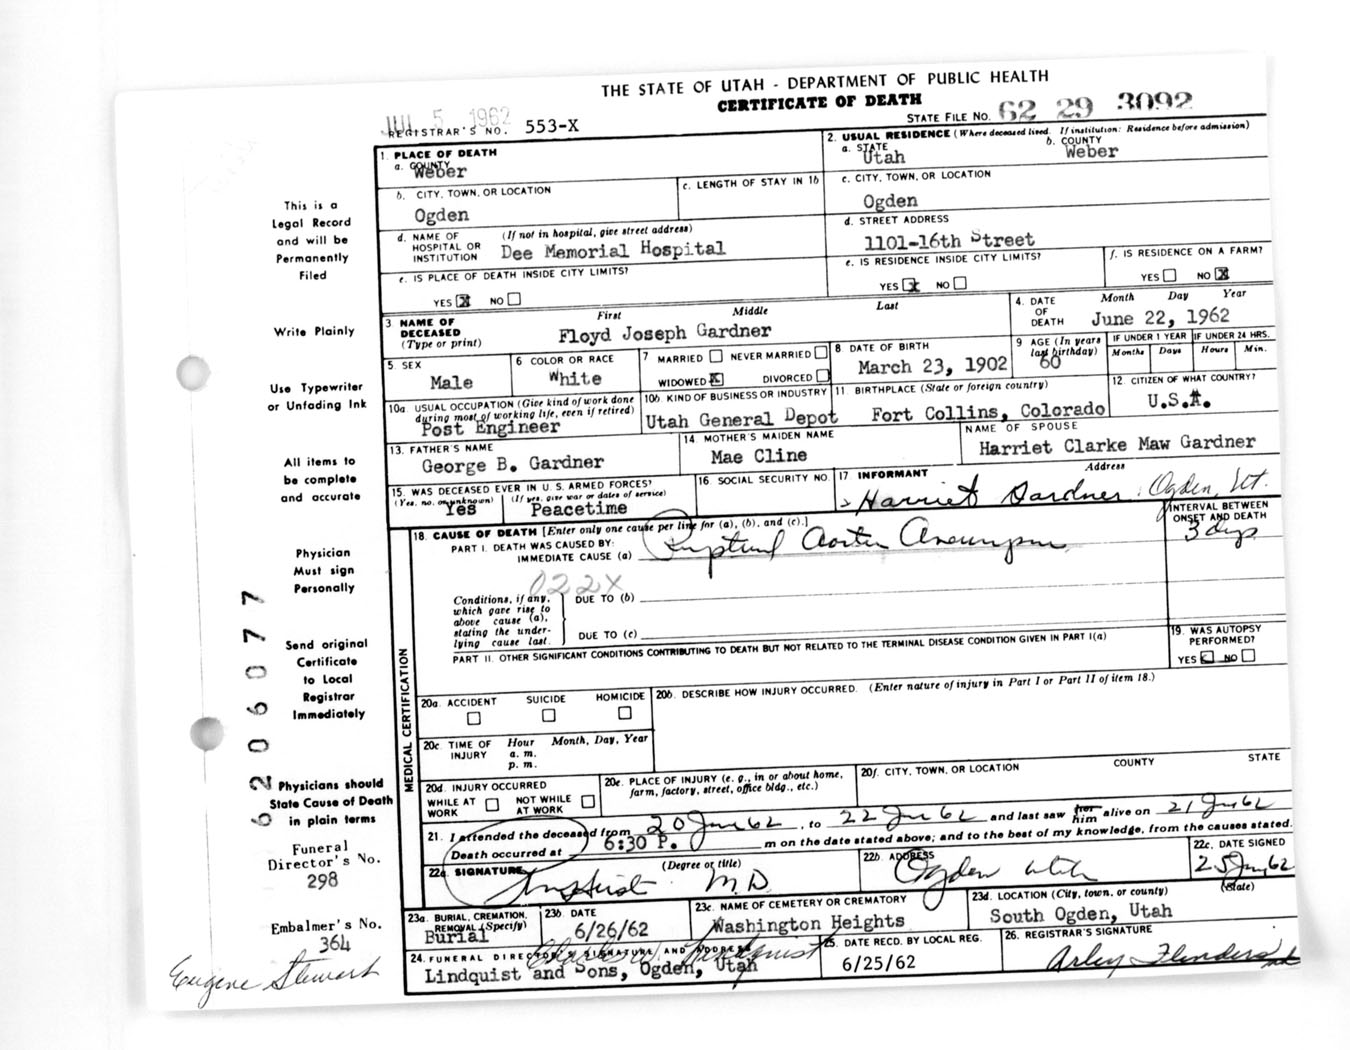 THE STATE OF UTAH - DEPARTMENT OF PUBLIC HEALTH
CERTIFICATE OF DEATH
JUL 5 1962
REGISTRAR'S NO. 553-X
STATE FILE NO. 62 29 3092
This is a
Legal Record
and will be
Permanently
Filed
Write Plainly
Use Typewriter
or Unfading Ink
All items to
be complete
and accurate
Physician
Must sign
Personally
Send original
Certificate
to Local
Registrar
Immediately
Physicians should
State Cause of Death
in plain terms
Funeral
Director's No.
298
Embalmer's No.
364
Eugene Stewart
6206077
1. PLACE OF DEATH
a. COUNTY
Weber
b. CITY, TOWN, OR LOCATION
Ogden
c. LENGTH OF STAY IN 1b
d. NAME OF HOSPITAL OR INSTITUTION (If not in hospital, give street address)
Dee Memorial Hospital
e. IS PLACE OF DEATH INSIDE CITY LIMITS?
YES X NO
2. USUAL RESIDENCE (Where deceased lived. If institution: Residence before admission)
a. STATE
Utah
b. COUNTY
Weber
c. CITY, TOWN, OR LOCATION
Ogden
d. STREET ADDRESS
1101-16th Street
e. IS RESIDENCE INSIDE CITY LIMITS?
YES X NO
f. IS RESIDENCE ON A FARM?
YES NO X
3 NAME OF DECEASED (Type or print)
First Middle Last
Floyd Joseph Gardner
4. DATE OF DEATH
Month Day Year
June 22, 1962
5. SEX
Male
6 COLOR OR RACE
White
7 MARRIED NEVER MARRIED
WIDOWED X DIVORCED
8 DATE OF BIRTH
March 23, 1902
9 AGE (In years last birthday)
60
IF UNDER 1 YEAR
Months Days
IF UNDER 24 HRS.
Hours Min.
10a. USUAL OCCUPATION (Give kind of work done during most of working life, even if retired)
Post Engineer
10b. KIND OF BUSINESS OR INDUSTRY
Utah General Depot
11. BIRTHPLACE (State or foreign country)
Fort Collins, Colorado
12. CITIZEN OF WHAT COUNTRY?
U.S.A.
13. FATHER'S NAME
George B. Gardner
14. MOTHER'S MAIDEN NAME
Mae Cline
NAME OF SPOUSE
Harriet Clarke Maw Gardner
15. WAS DECEASED EVER IN U. S. ARMED FORCES?
(Yes, no, or unknown) (If yes, give war or dates of service)
Yes Peacetime
16. SOCIAL SECURITY NO.
17 INFORMANT Address
Harriet Gardner Ogden, Ut.
18. CAUSE OF DEATH [Enter only one cause per line for (a), (b), and (c).]
PART I. DEATH WAS CAUSED BY:
IMMEDIATE CAUSE (a) Ruptured Aortic Aneurysm
INTERVAL BETWEEN ONSET AND DEATH
3 dys
022X
Conditions, if any, which gave rise to above cause (a), stating the underlying cause last.
DUE TO (b)
DUE TO (c)
PART II. OTHER SIGNIFICANT CONDITIONS CONTRIBUTING TO DEATH BUT NOT RELATED TO THE TERMINAL DISEASE CONDITION GIVEN IN PART I(a)
19. WAS AUTOPSY PERFORMED?
YES NO
MEDICAL CERTIFICATION
20a. ACCIDENT SUICIDE HOMICIDE
20b. DESCRIBE HOW INJURY OCCURRED. (Enter nature of injury in Part I or Part II of item 18.)
20c. TIME OF INJURY
Hour Month, Day, Year
a. m.
p. m.
20d. INJURY OCCURRED
WHILE AT WORK NOT WHILE AT WORK
20e. PLACE OF INJURY (e. g., in or about home, farm, factory, street, office bldg., etc.)
20f. CITY, TOWN, OR LOCATION COUNTY STATE
21. I attended the deceased from 20 Jun 62, to 22 Jun 62 and last saw her him alive on 21 Jun 62
Death occurred at 6:30 P. m on the date stated above; and to the best of my knowledge, from the causes stated.
22a. SIGNATURE (Degree or title)
M.D.
22b. ADDRESS
Ogden Utah
22c. DATE SIGNED
25 Jun 62
23a. BURIAL, CREMATION, REMOVAL (Specify)
Burial
23b. DATE
6/26/62
23c. NAME OF CEMETERY OR CREMATORY
Washington Heights
23d. LOCATION (City, town, or county) (State)
South Ogden, Utah
24. FUNERAL DIRECTOR'S SIGNATURE AND ADDRESS
Lindquist and Sons, Ogden, Utah
25. DATE RECD. BY LOCAL REG.
6/25/62
26. REGISTRAR'S SIGNATURE
Arley Flinders